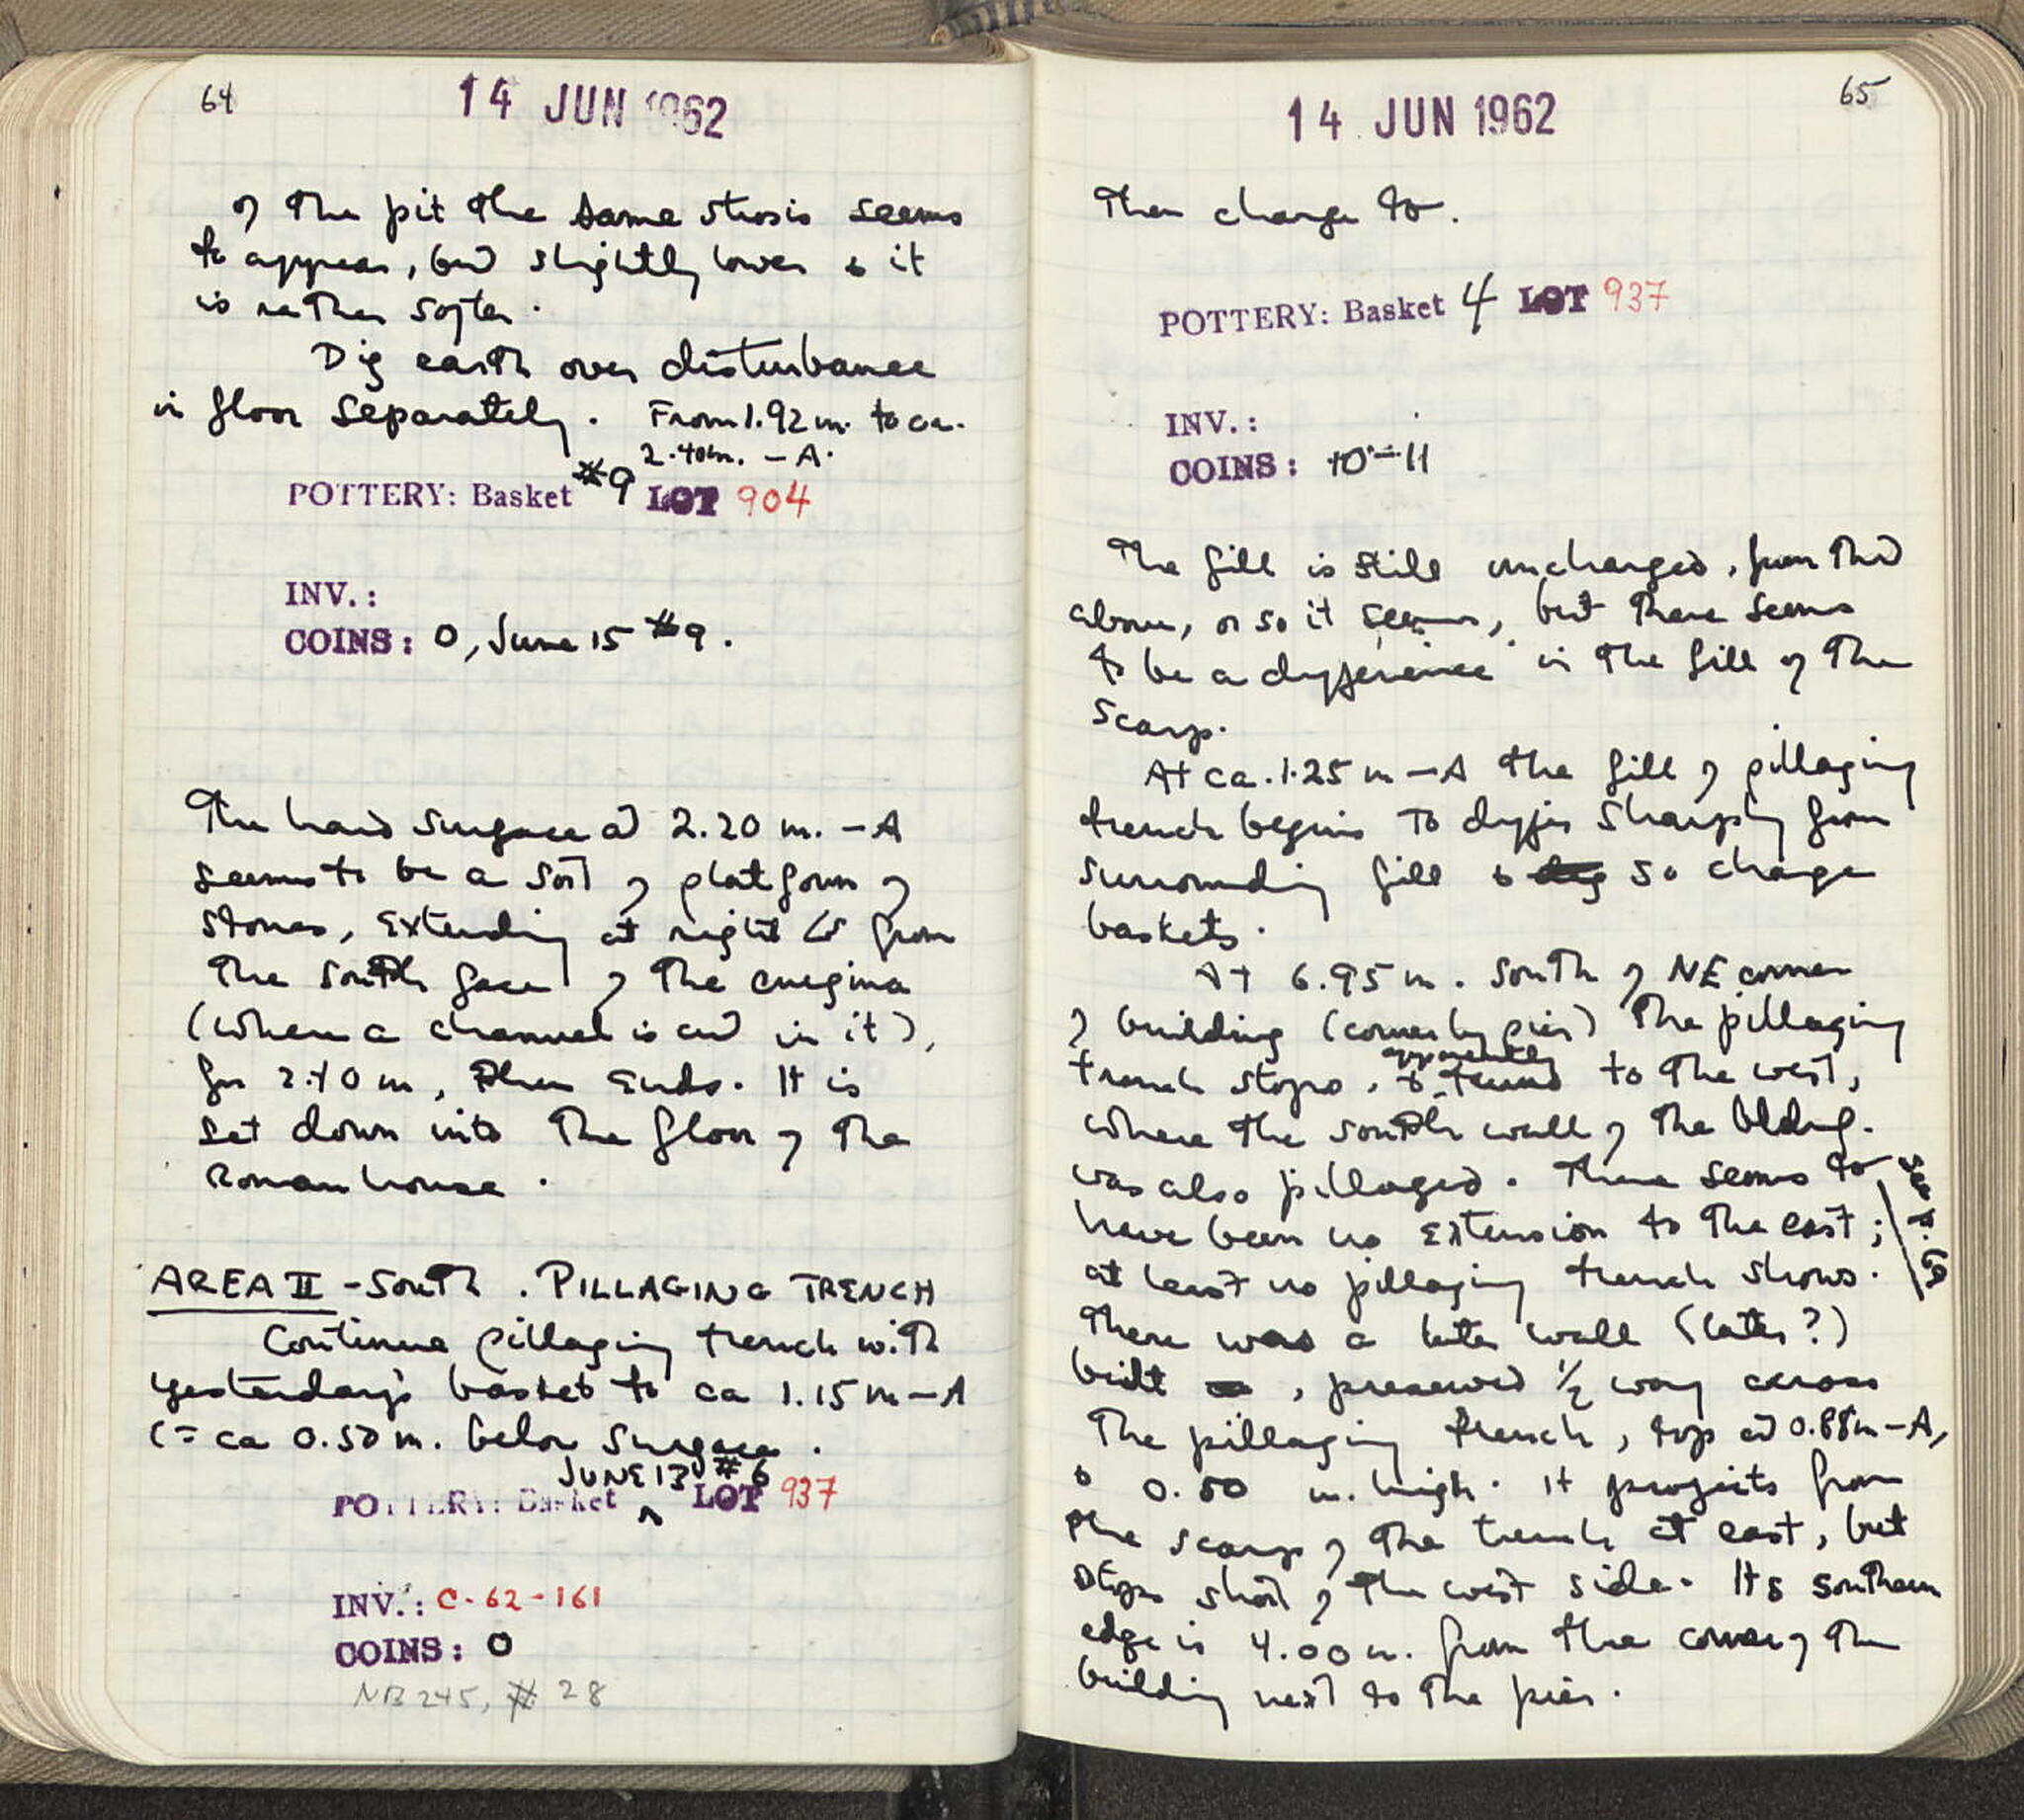 64
14 JUN 1962
of the pit the same strosis seems
to appear, but slightly lower & it
is rather softer.
Dig earth over disturbance
in floor separately. From 1.92 m. to ca.
2.40m. - A.
POTTERY: Basket #9 LOT 904
INV.:
COINS: 0, June 15 #9.
The hard surface at 2.20 m. - A
seems to be a sort of platform of
stones, extending at right ∠s from
the south face of the
(where a channel is cut in it),
for 2.10 m, then ends. It is
set down into the floor of the
Roman house.
AREA II - South. PILLAGING TRENCH
Continue pillaging trench with
yesterday's basket to ca 1.15 m - A
(= ca 0.50 m. below surface.
JUNE 13 #6
POTTERY: Basket ^ LOT 937
INV.: C-62-161
COINS: 0
NB 245, # 28
65
14 JUN 1962
Then change to.
POTTERY: Basket 4 LOT 937
INV.:
COINS: 10-11
The fill is still unchanged, from that
above, or so it seems, but there seems
to be a difference in the fill of the
scarp.
At ca. 1.25 m - A the fill of pillaging
trench begins to differ sharply from
surrounding fill & dig so change
baskets.
At 6.95 m. south of NE corner
of building (corner by pier) the pillaging
trench stops, & apparently turns to the west,
where the south wall of the bldng.
was also pillaged. There seems to
have been no extension to the east;
at least no pillaging trench shows.
see p. 69
There was a late wall (later?)
built , preserved 1/2 way across
the pillaging trench, top at 0.88m - A,
& 0.50 m. high. It projects from
the scarp of the trench at east, but
stops short of the west side. Its southern
edge is 4.00 m. from the corner of the
building next to the pier.